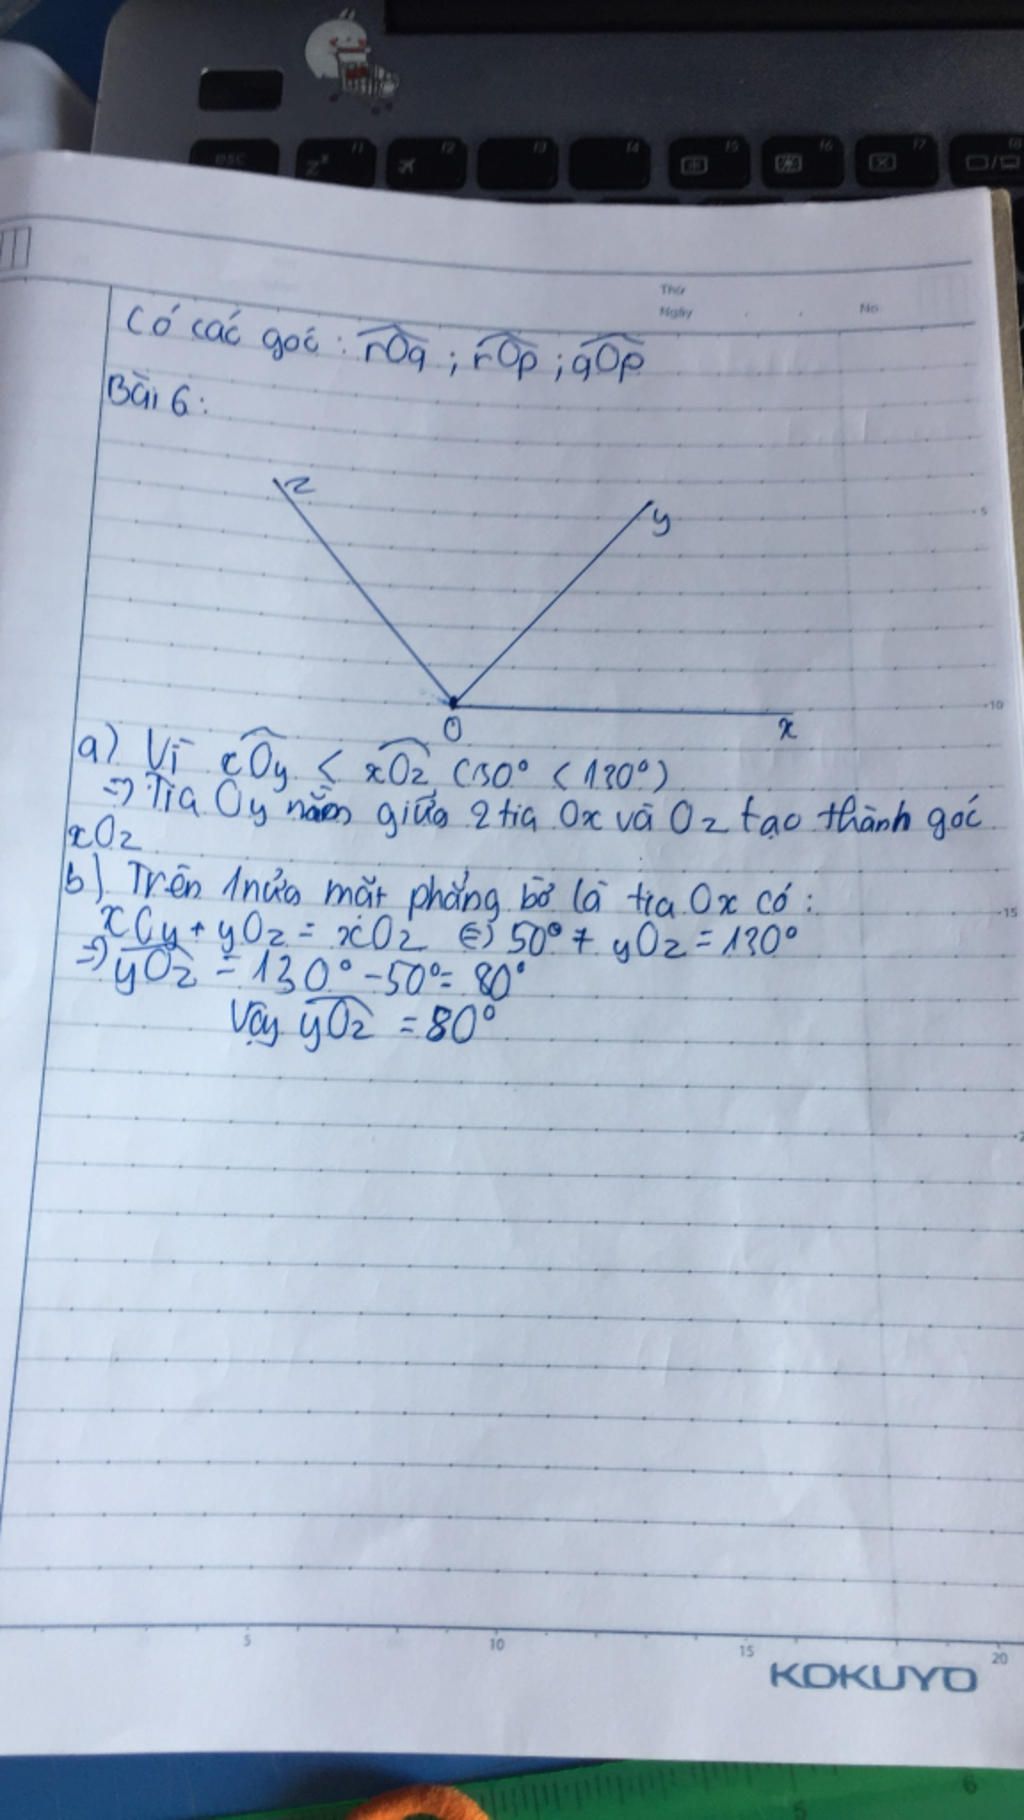 esc
z
f1
f2
f3
f4
f5
f6
f7
f8
Thứ
Ngày . .
No
Có các góc : rOq ; rOp ; qOp
Bài 6 :
z
y
5
10
O
x
a) Vì xOy < xOz (50° < 130°)
=> Tia Oy nằm giữa 2 tia Ox và Oz tạo thành góc
xOz
b) Trên 1 nửa mặt phẳng bờ là tia Ox có :
15
xOy + yOz = xOz <=> 50° + yOz = 130°
=> yOz = 130° - 50° = 80°
Vậy yOz = 80°
5
10
15
20
KOKUYO
5
6